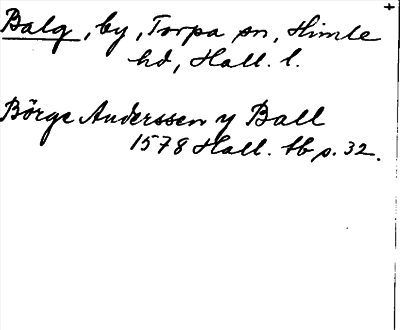 Balg, by, Torpa sn, Himle
hd, Hall. l.
Börge Anderssen y Ball
1578 Hall. tb s. 32.